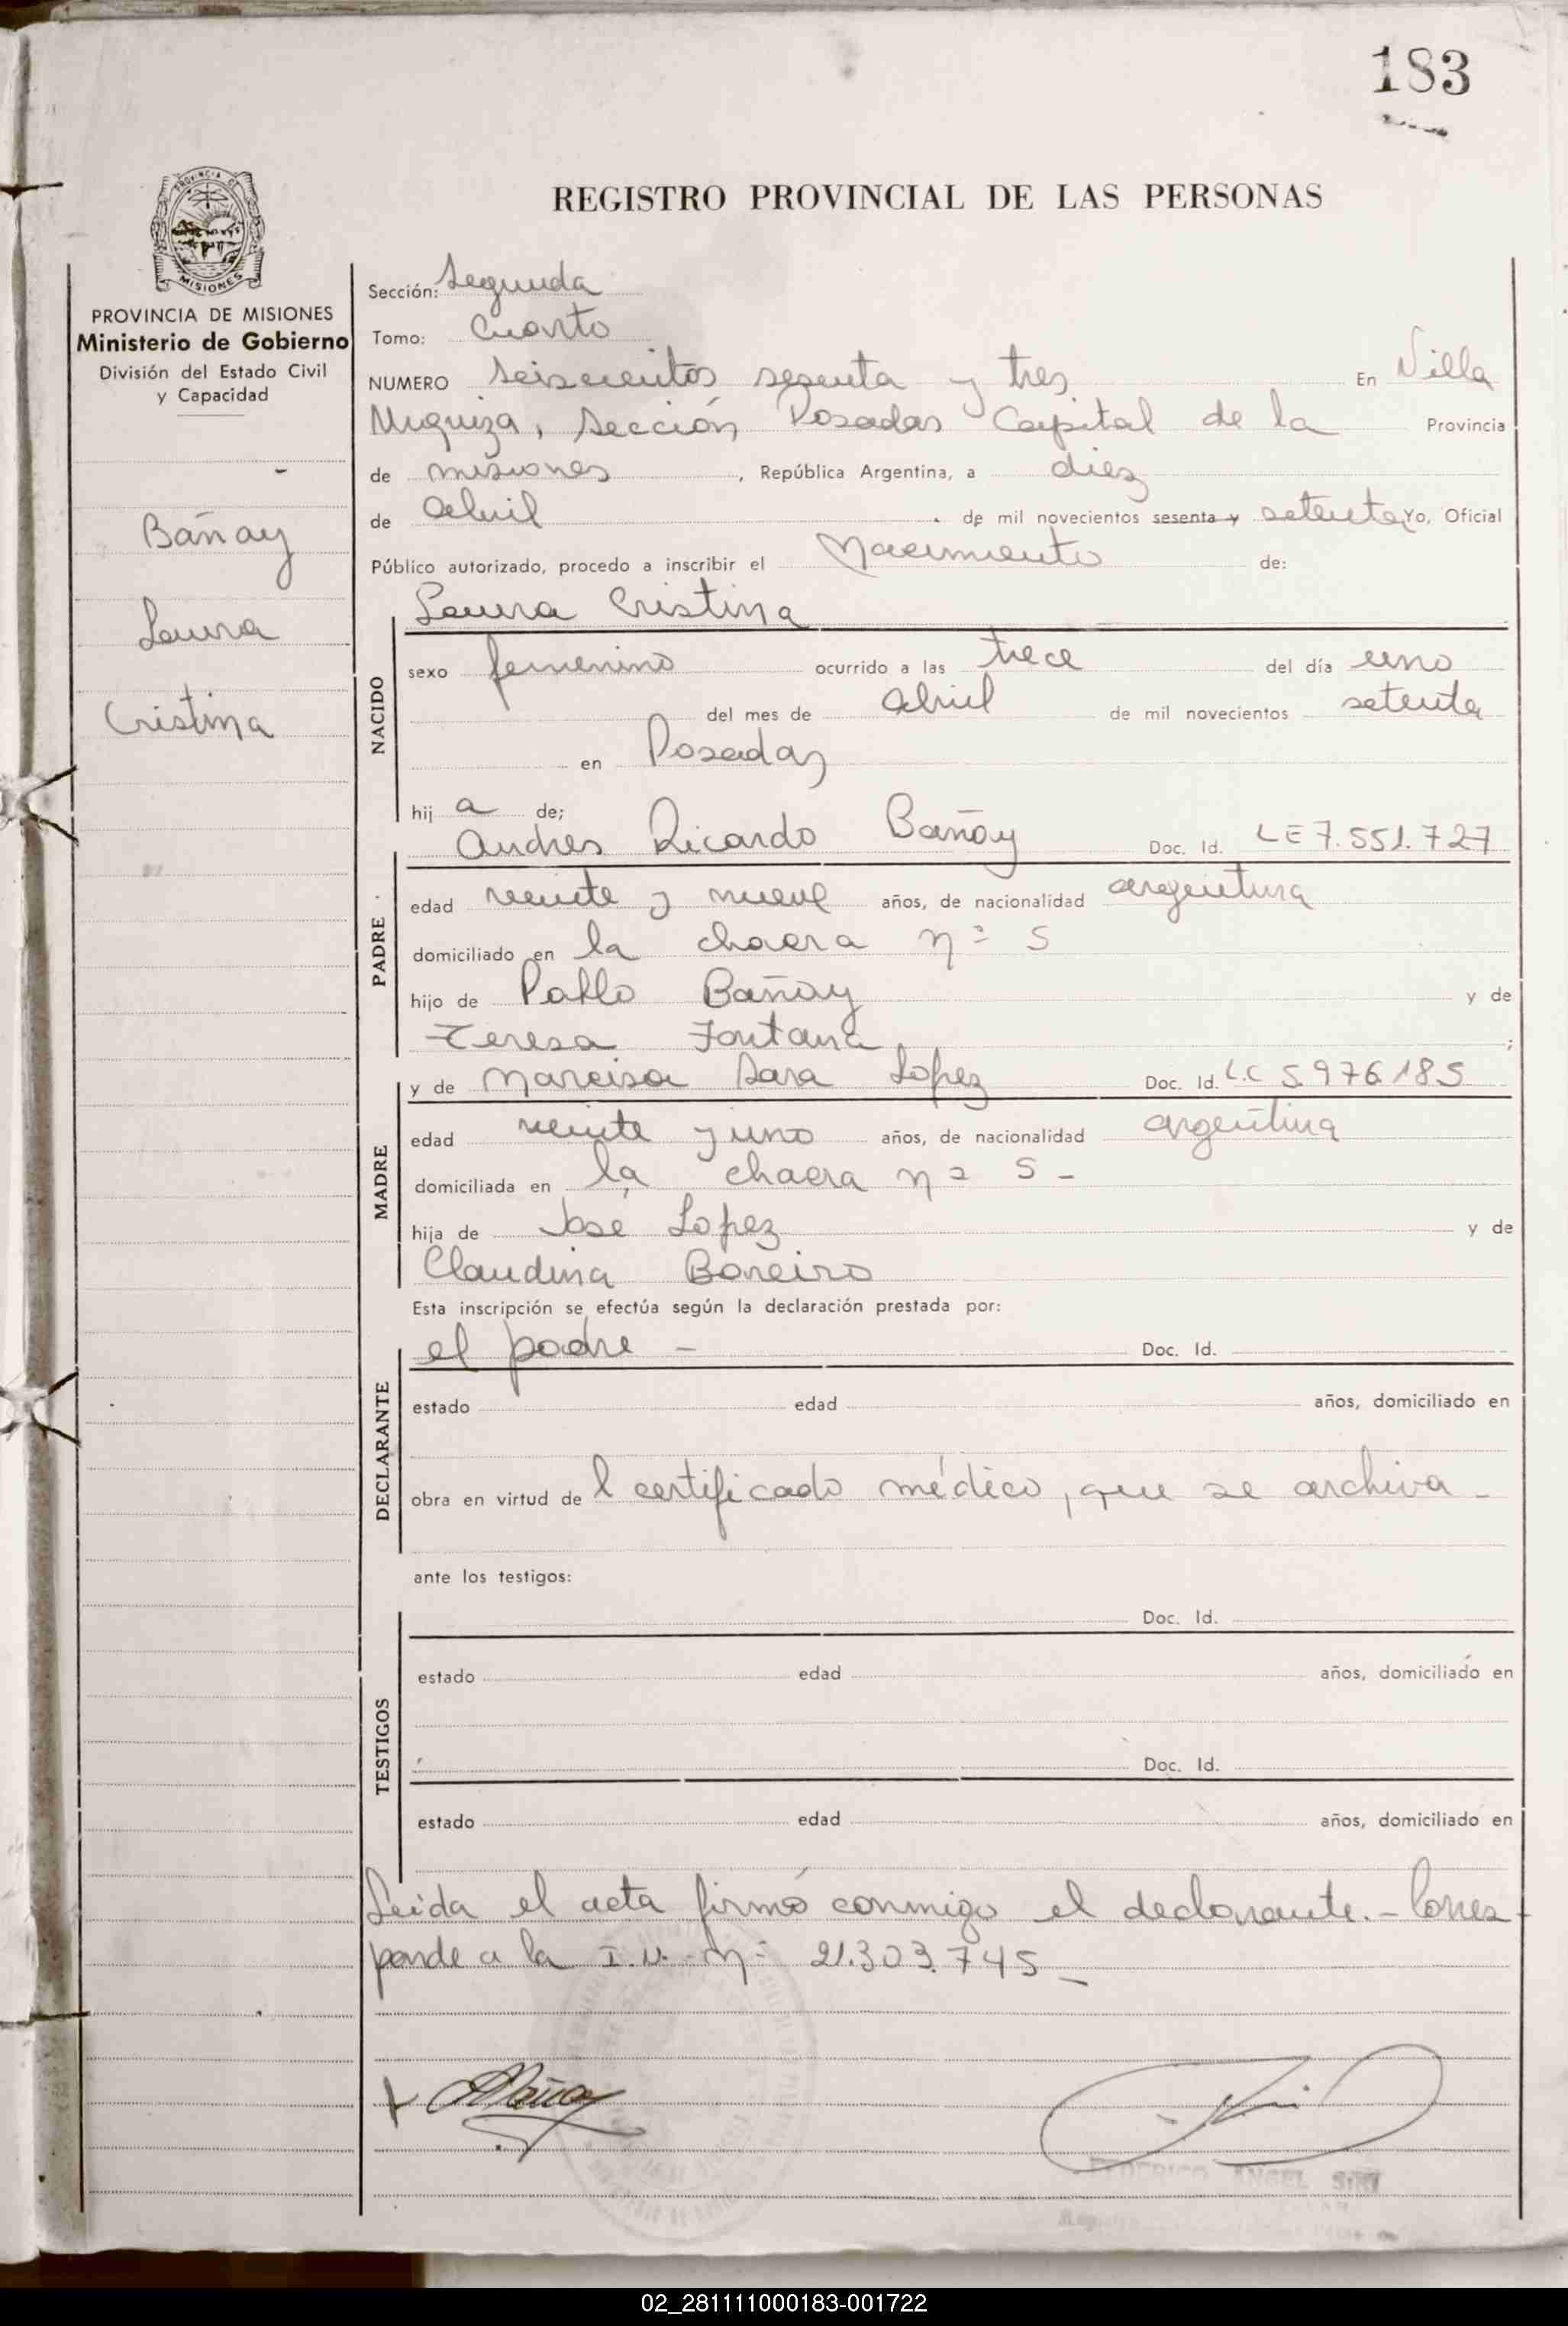 183
REGISTRO PROVINCIAL DE LAS PERSONAS
PROVINCIA DE MISIONES
MISIONES
PROVINCIA DE MISIONES
Ministerio de Gobierno
División del Estado Civil
y Capacidad
Bañay
Laura
Cristina
Sección: Segunda
Tomo: Cuarto
NUMERO seiscientos sesenta y tres En Villa
Urquiza, Sección Posadas Capital de la Provincia
de misiones, República Argentina, a diez
de abril de mil novecientos sesenta y setenta Yo, Oficial
Público autorizado, procedo a inscribir el Nacimiento de:
Laura Cristina
NACIDO
sexo femenino ocurrido a las trece del día uno
del mes de abril de mil novecientos setenta
en Posadas
hij a de;
Andres Ricardo Bañay Doc. Id. LE 7.551.727
PADRE
edad veinte y nueve años, de nacionalidad argentina
domiciliado en la chacra nº 5
hijo de Pablo Bañay y de
Teresa Fontana ;
y de Narcisa Sara Lopez Doc. Id. L.C 5976.185
MADRE
edad veinte y uno años, de nacionalidad argentina
domiciliada en la chacra nº 5 -
hija de José Lopez y de
Claudina Boreiro
Esta inscripción se efectúa según la declaración prestada por:
el padre - Doc. Id.
DECLARANTE
estado edad años, domiciliado en
obra en virtud de l certificado médico, que se archiva -
ante los testigos:
Doc. Id.
TESTIGOS
estado edad años, domiciliado en
Doc. Id.
estado edad años, domiciliado en
Leida el acta firmó conmigo el declarante. - Corres
ponde a la I.N. nº 21.303.745 -
ABañay
FEDERICO ANGEL SIRI
02_281111000183-001722